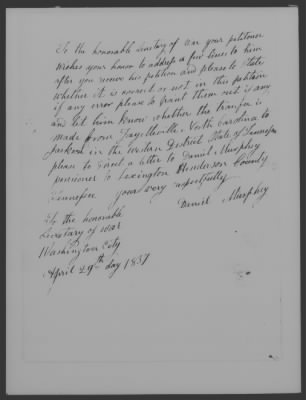 To the honorable Secretary of War your petitioner
wishes your honor to address a few lines to him
after you receive his petition and please to State
whether it is correct or not in this petition
if any error please to trant them out if any
and let him know whether the transfer is
made from Fayetteville North Carolina to
Jackson in the Western District State of Tennessee
please to Direct a letter to Daniel Murphey
pensioner to Lexington Henderson County
Tennessee your very respectfully
Daniel Murphey
To the honorable
Secretary of War
Washington City
April 29th day 1837